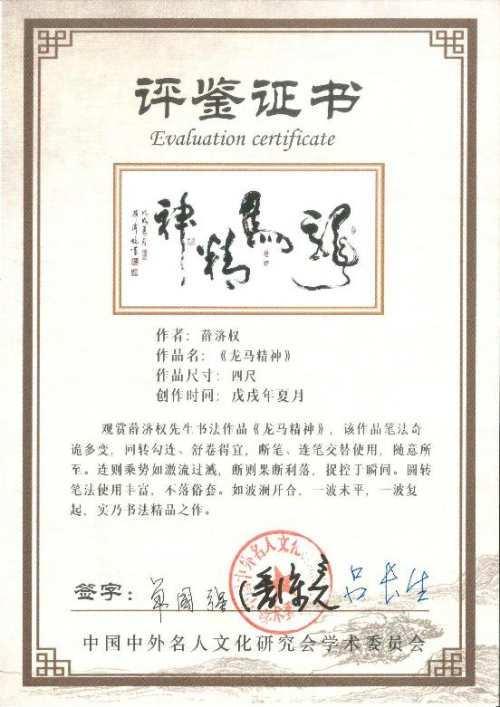 评鉴证书
Evaluation certificate
龍馬精神
戊戌夏月
薛济权書
作者：薛济权
作品名：《龙马精神》
作品尺寸：四尺
创作时间：戊戌年夏月
观赏薛济权先生书法作品《龙马精神》，该作品笔法奇
诡多变，回转勾连、舒卷得宜，断笔、连笔交替使用，随意所
至。连则乘势如激流过溅，断则果断利落，捉控于瞬间。圆转
笔法使用丰富，不落俗套。如波澜开合，一波未平，一波复
起，实乃书法精品之作。
中外名人文化
签字：单国强 吕长生
中国中外名人文化研究会学术委员会